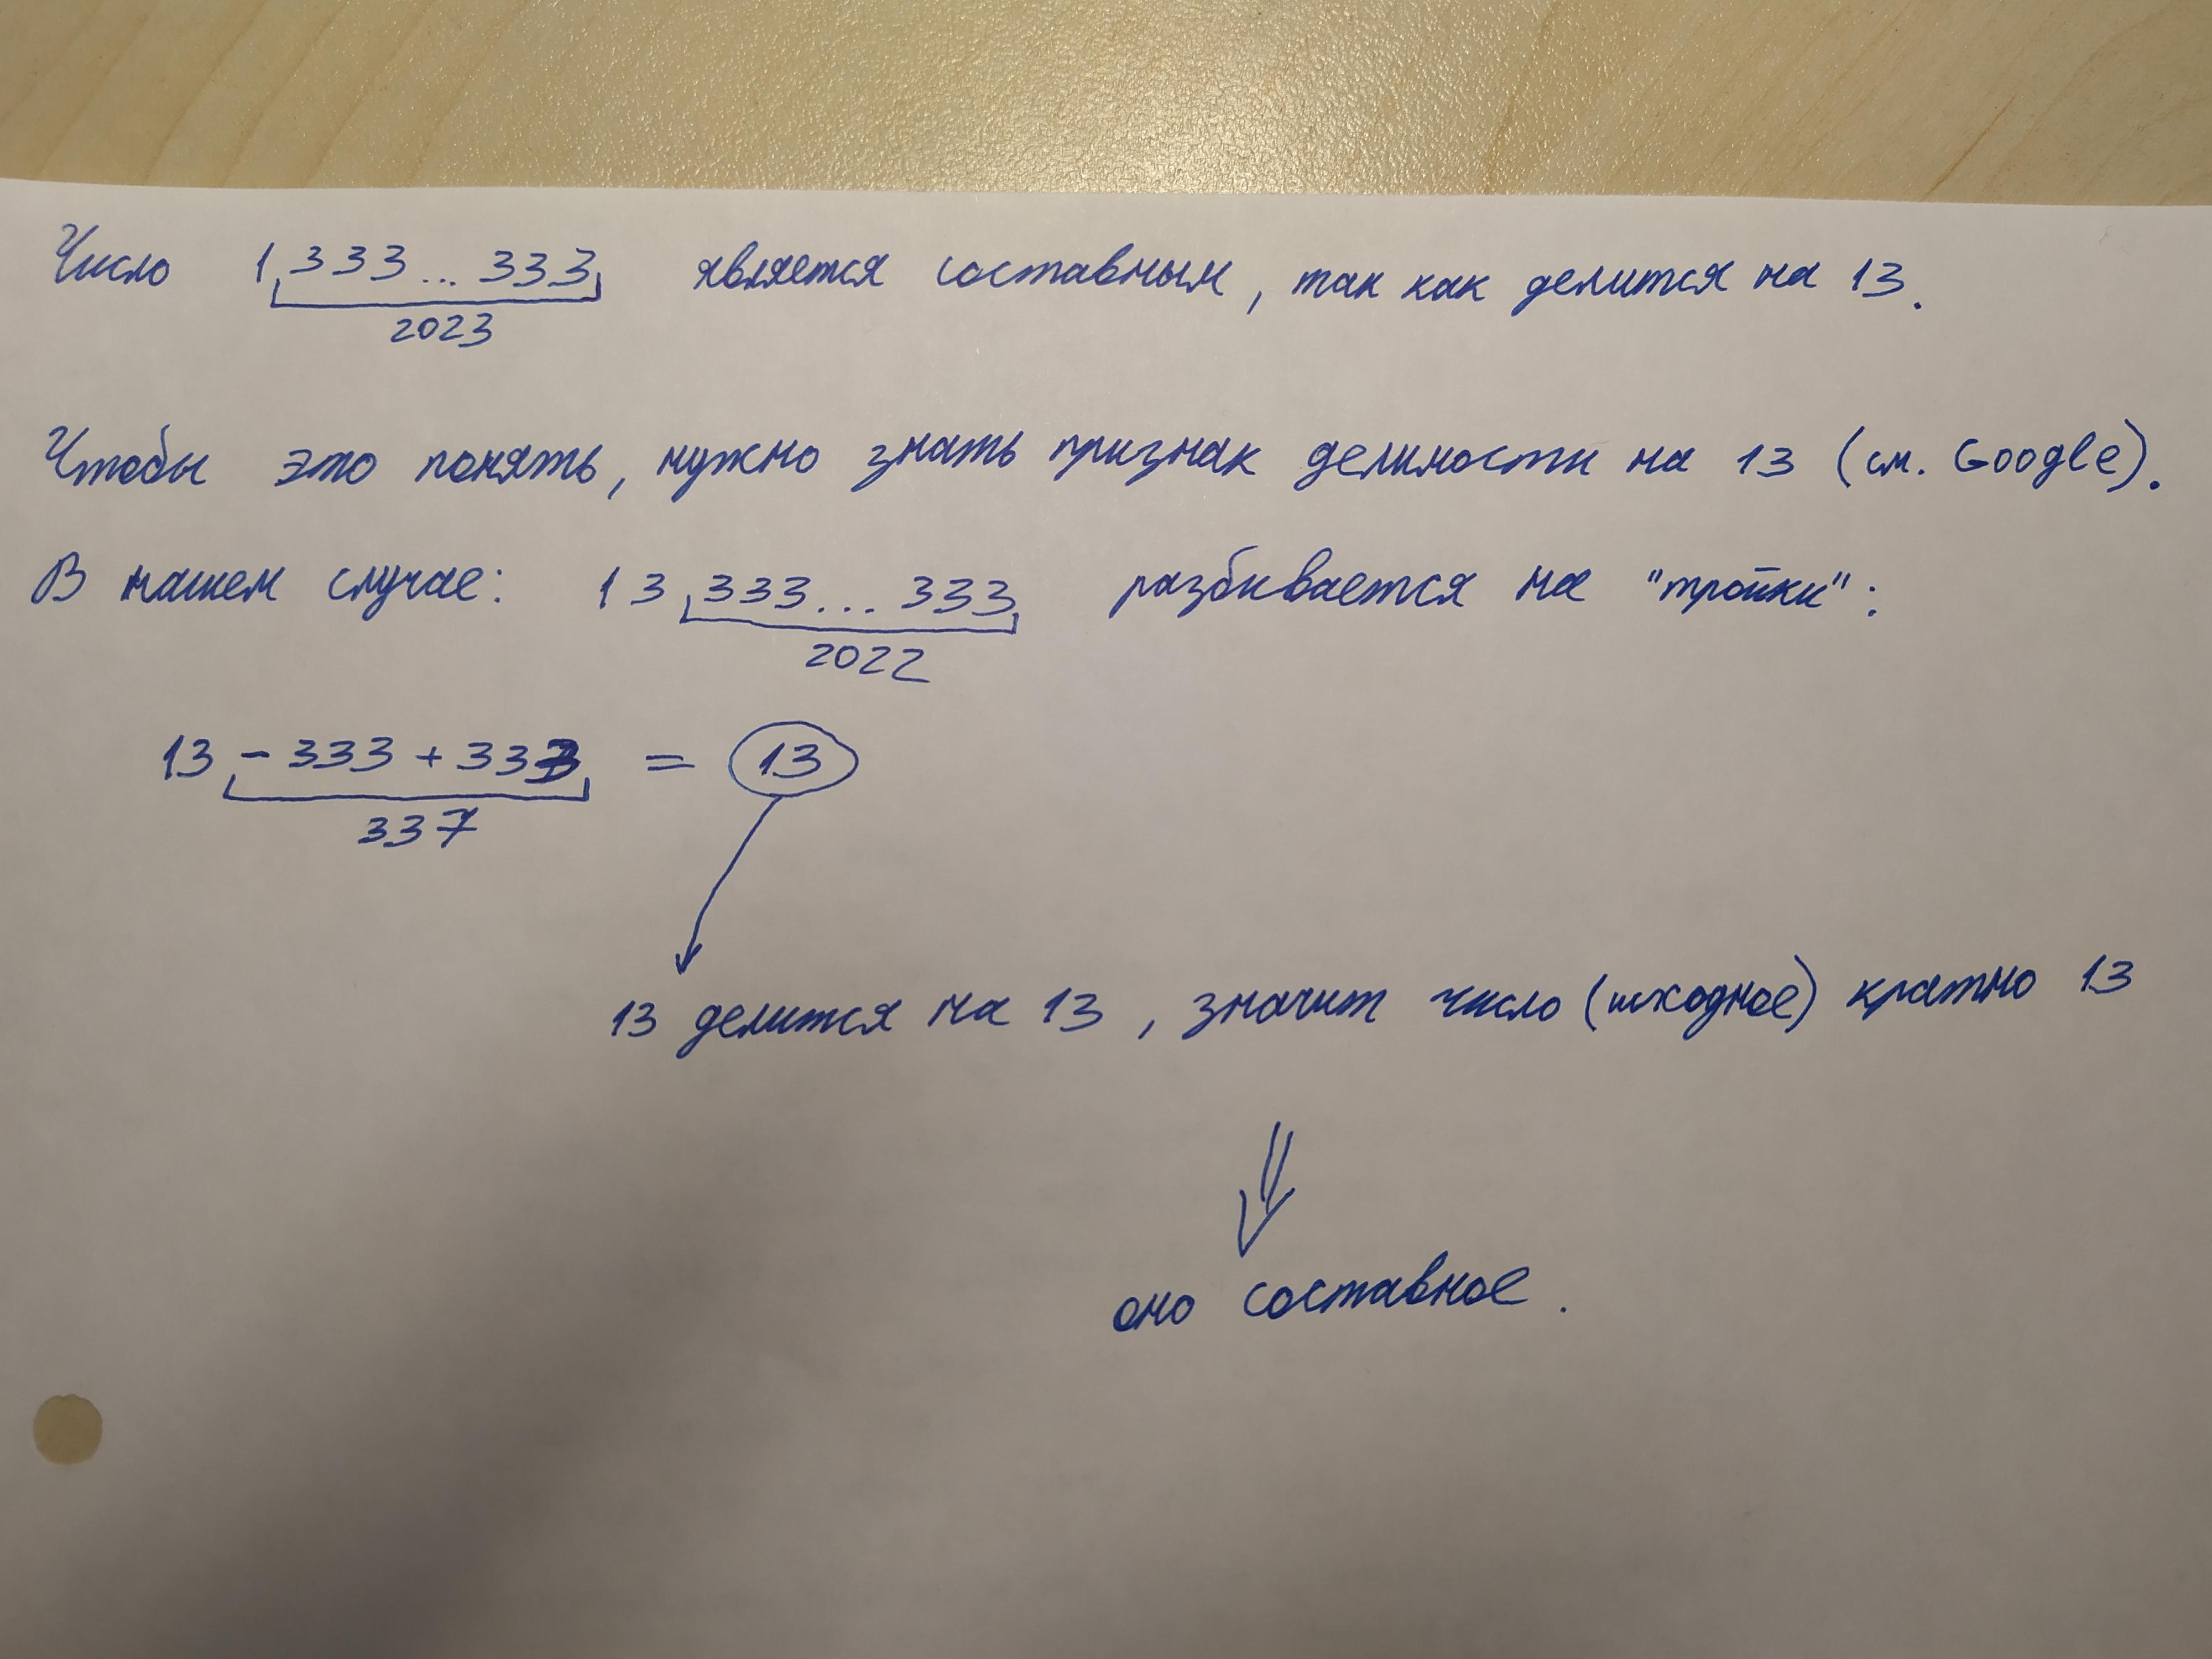 Число 1 333...333 является составным, так как делится на 13.
2023
Чтобы это понять, нужно знать признак делимости на 13 (см. Google).
В нашем случае: 13 333...333 разбивается на "тройки":
2022
13 - 333 + 333 = 13
337
13 делится на 13, значит число (исходное) кратно 13
⇓
оно составное.